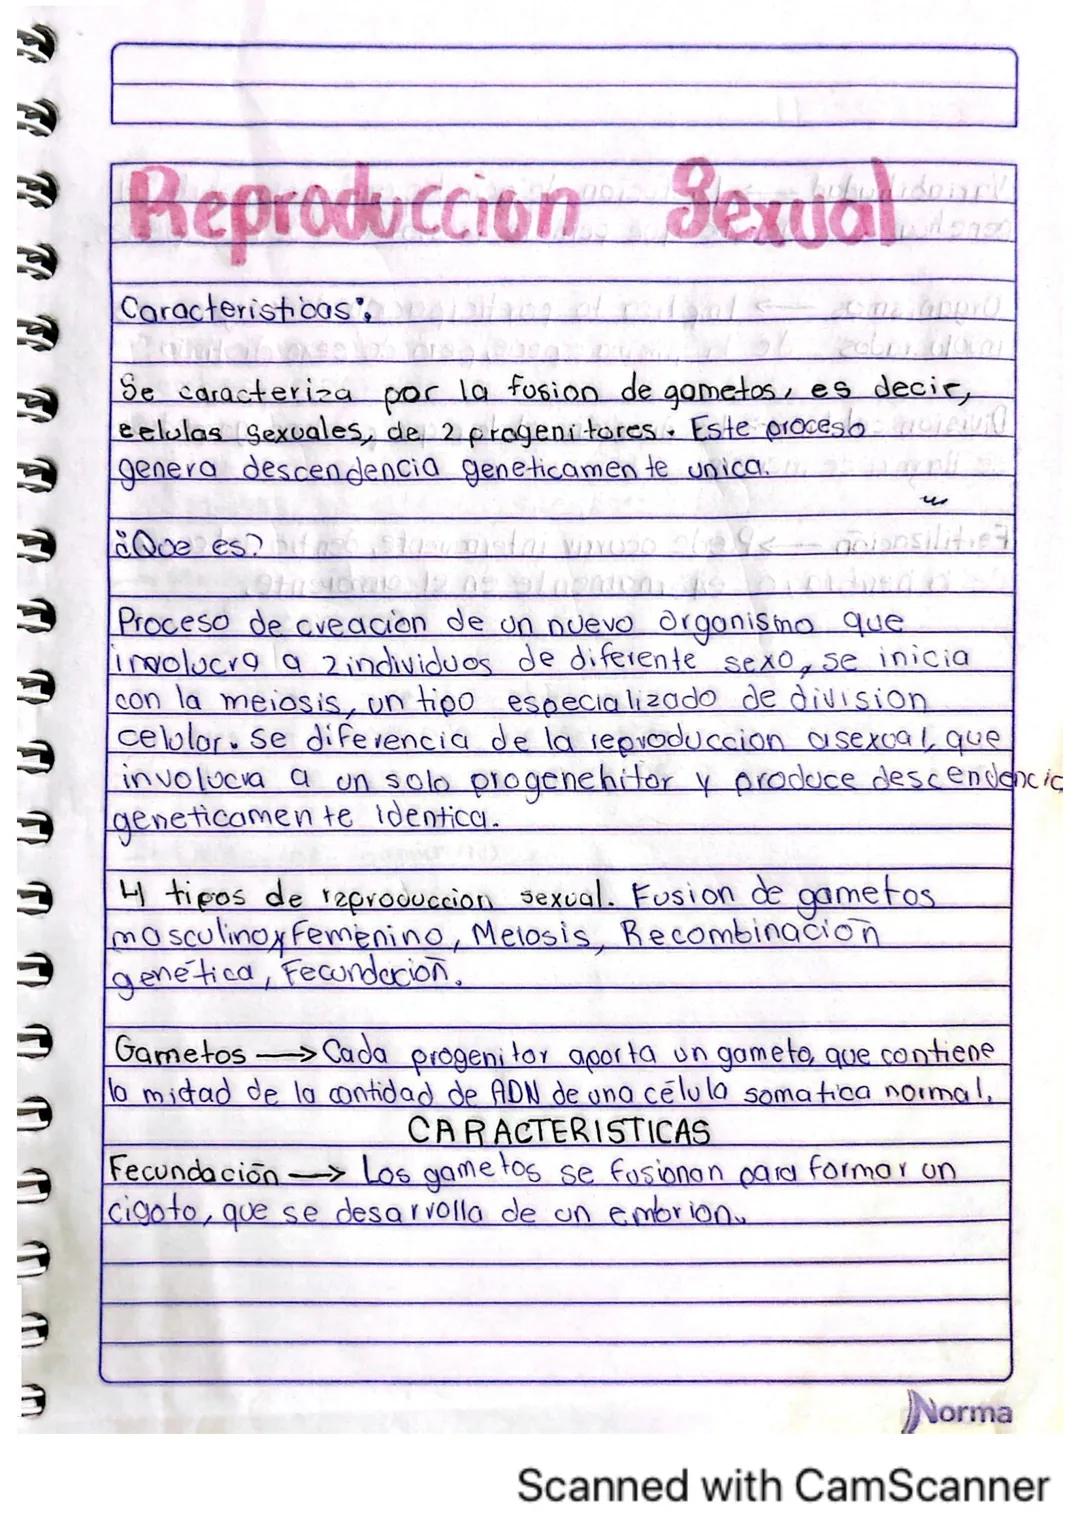 Reproduccion Sexual
Caracteristicas:
Se caracteriza por la fusion de gametos, es decir,
celulas sexuales, de 2 progenitores. Este proceso
genera descendencia geneticamente unica.
¿Que es?
Proceso de creación de un nuevo organismo que
involucra a 2 individuos de diferente sexo, se inicia
con la meiosis, un tipo especializado de division
celular. se diferencia de la reproduccion asexual, que
involucra a un solo progenehitor y produce descendencia
geneticamente identica.
4 tipos de reproduccion sexual. Fusion de gametos
masculino y femenino, Meiosis, Recombinación
genética, Fecundación.
Gametos → Cada progenitor aporta un gameto, que contiene
la mictad de la cantidad de ADN de una célula somatica normal.
CARACTERISTICAS
Fecundación → Los gametos se fusionan para formar un
cigoto, que se desarrolla de un embrion.
Norma
Scanned with CamScanner